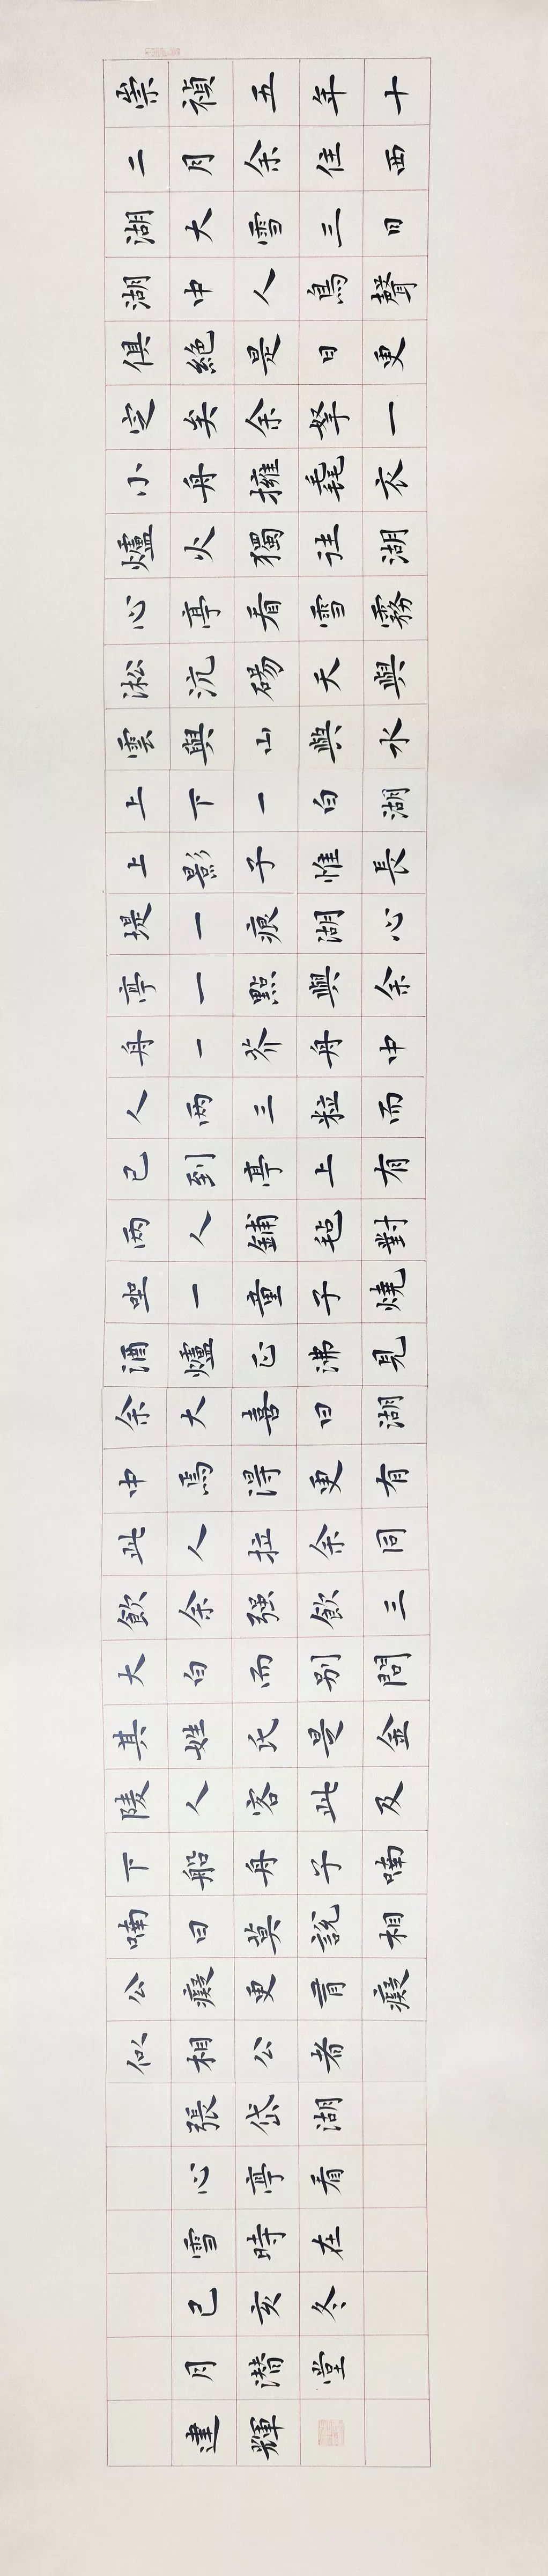 崇禎五年十
二月余住西
湖大雪三日
湖中人鳥聲
俱絕是日更
定矣余拏一
小舟擁毳衣
爐火獨往湖
心亭看雪霧
淞沆碭天與
雲與山與水
上下一白湖
上影子惟長
堤一痕湖心
亭一點與余
舟一芥舟中
人两三粒而
已到亭上有
两人鋪毡對
坐一童子燒
酒爐正沸見
余大喜曰湖
中焉得更有
此人拉余同
飲余强飲三
大白而别問
其姓氏是金
陵人客此及
下船舟子喃
喃曰莫說相
公癡更有癡
似相公者
張岱湖
心亭看
雪時在
己亥冬
月潜堂
建輝